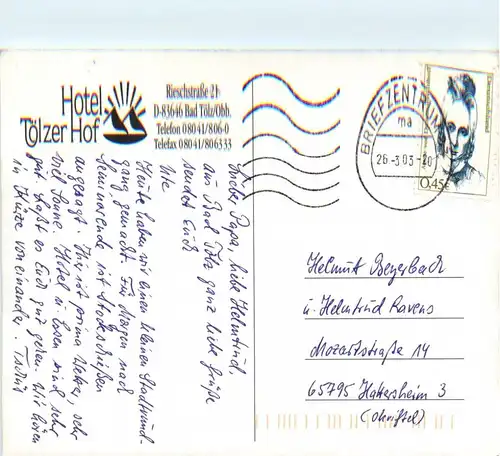 Hotel
Tölzer Hof
Rieschstraße 21
D-83646 Bad Tölz/Obb.
Telefon 08041/806-0
Telefax 08041/806333
BRIEFZENTRUM
ma
26.-3.03-20
0,45€
Lieber Papa, liebe Helmtrud,
aus Bad Tölz ganz liebe Grüße
sendet Euch
Ute
Heute haben wir einen kleinen Stadtrund-
gang gemacht. Für Morgen nach
Seminarende ist Stockschießen
angesagt. Hier ist prima Wetter, sehr
viel Sonne. Hotel u. Essen sind sehr
gut. Laßt es Euch gut gehen. Wir hören
in Kürze voneinander. Tschüß
Helmut Beyerbach
u. Helmtrud Ravens
Mozartstraße 14
65795 Hattersheim 3
(Okriftel)